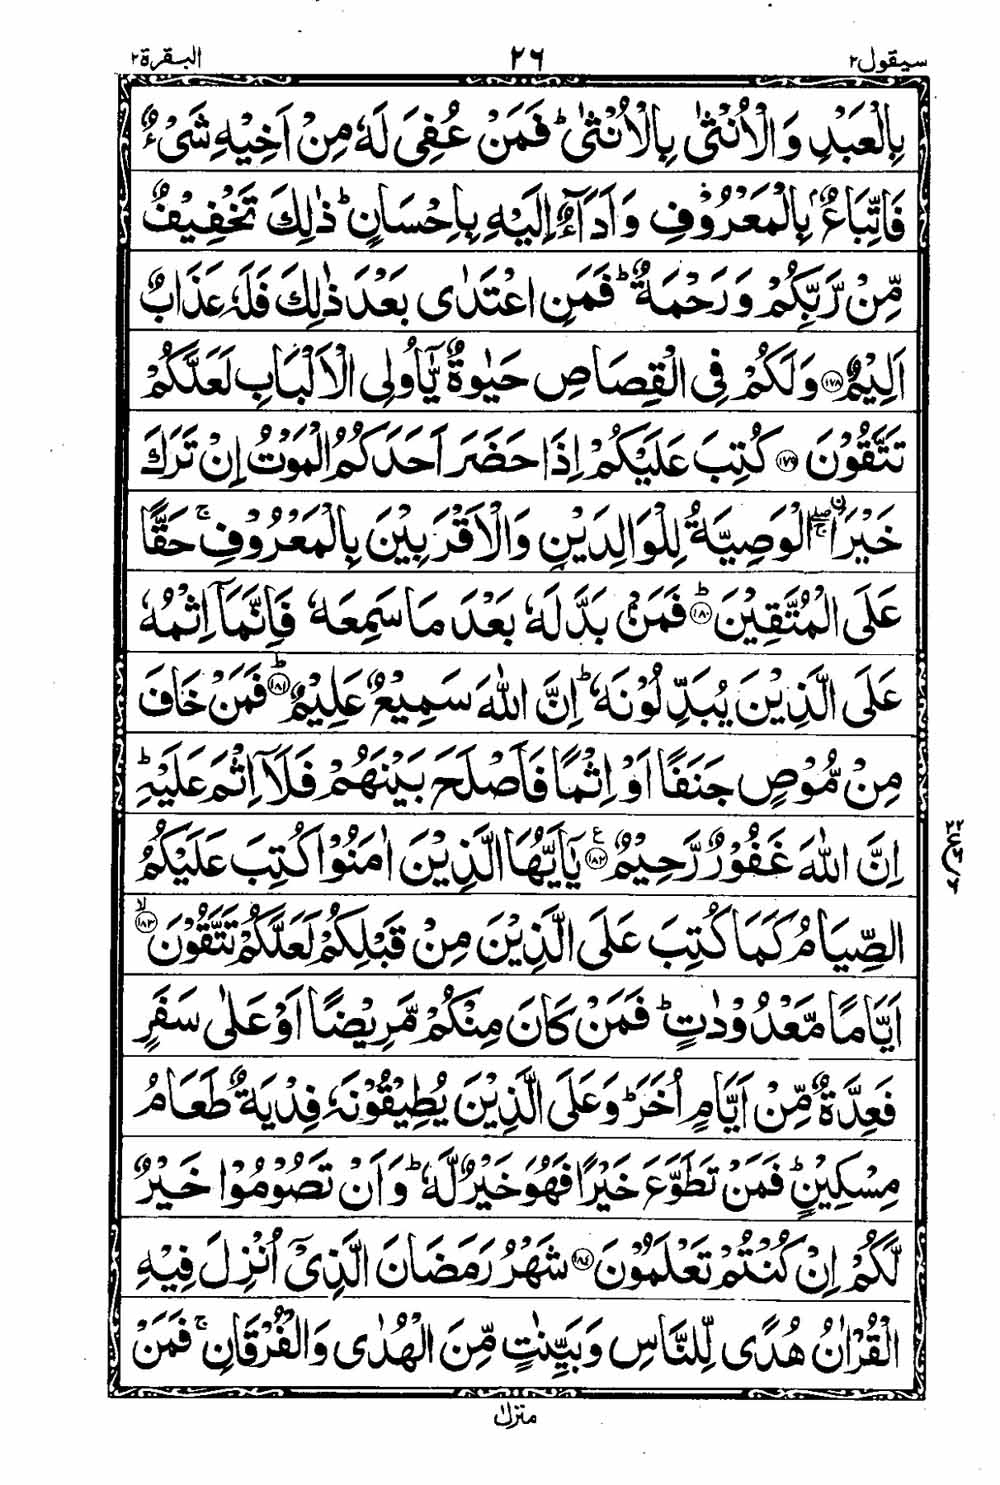 سيقول ٢ ٢٦ البقرة ٢
بِالْعَبْدِ وَالْاُنْثٰى بِالْاُنْثٰىؕ فَمَنْ عُفِىَ لَهٗ مِنْ اَخِيْهِ شَىْءٌ
فَاتِّبَاعٌۢ بِالْمَعْرُوْفِ وَاَدَآءٌ اِلَيْهِ بِاِحْسَانٍؕ ذٰلِكَ تَخْفِيْفٌ
مِّنْ رَّبِّكُمْ وَرَحْمَةٌؕ فَمَنِ اعْتَدٰى بَعْدَ ذٰلِكَ فَلَهٗ عَذَابٌ
اَلِيْمٌ ۝١٧٨ وَلَكُمْ فِى الْقِصَاصِ حَيٰوةٌ يّٰۤاُولِى الْاَلْبَابِ لَعَلَّكُمْ
تَتَّقُوْنَ ۝١٧٩ كُتِبَ عَلَيْكُمْ اِذَا حَضَرَ اَحَدَكُمُ الْمَوْتُ اِنْ تَرَكَ
خَيْرَاۖۚ اۨلْوَصِيَّةُ لِلْوَالِدَيْنِ وَالْاَقْرَبِيْنَ بِالْمَعْرُوْفِۚ حَقًّا
عَلَى الْمُتَّقِيْنَؕ ۝١٨٠ فَمَنْۢ بَدَّلَهٗ بَعْدَ مَا سَمِعَهٗ فَاِنَّمَاۤ اِثْمُهٗ
عَلَى الَّذِيْنَ يُبَدِّلُوْنَهٗؕ اِنَّ اللّٰهَ سَمِيْعٌ عَلِيْمٌؕ ۝١٨١ فَمَنْ خَافَ
مِنْ مُّوْصٍ جَنَفًا اَوْ اِثْمًا فَاَصْلَحَ بَيْنَهُمْ فَلَاۤ اِثْمَ عَلَيْهِؕ
اِنَّ اللّٰهَ غَفُوْرٌ رَّحِيْمٌ ۝١٨٢ ع يٰۤاَيُّهَا الَّذِيْنَ اٰمَنُوْا كُتِبَ عَلَيْكُمُ
الصِّيَامُ كَمَا كُتِبَ عَلَى الَّذِيْنَ مِنْ قَبْلِكُمْ لَعَلَّكُمْ تَتَّقُوْنَۙ ۝١٨٣
اَيَّامًا مَّعْدُوْدٰتٍؕ فَمَنْ كَانَ مِنْكُمْ مَّرِيْضًا اَوْ عَلٰى سَفَرٍ
فَعِدَّةٌ مِّنْ اَيَّامٍ اُخَرَؕ وَعَلَى الَّذِيْنَ يُطِيْقُوْنَهٗ فِدْيَةٌ طَعَامُ
مِسْكِيْنٍؕ فَمَنْ تَطَوَّعَ خَيْرًا فَهُوَ خَيْرٌ لَّهٗؕ وَاَنْ تَصُوْمُوْا خَيْرٌ
لَّكُمْ اِنْ كُنْتُمْ تَعْلَمُوْنَ ۝١٨٤ شَهْرُ رَمَضَانَ الَّذِىْۤ اُنْزِلَ فِيْهِ
الْقُرْاٰنُ هُدًى لِّلنَّاسِ وَبَيِّنٰتٍ مِّنَ الْهُدٰى وَالْفُرْقَانِۚ فَمَنْ
منزل ١